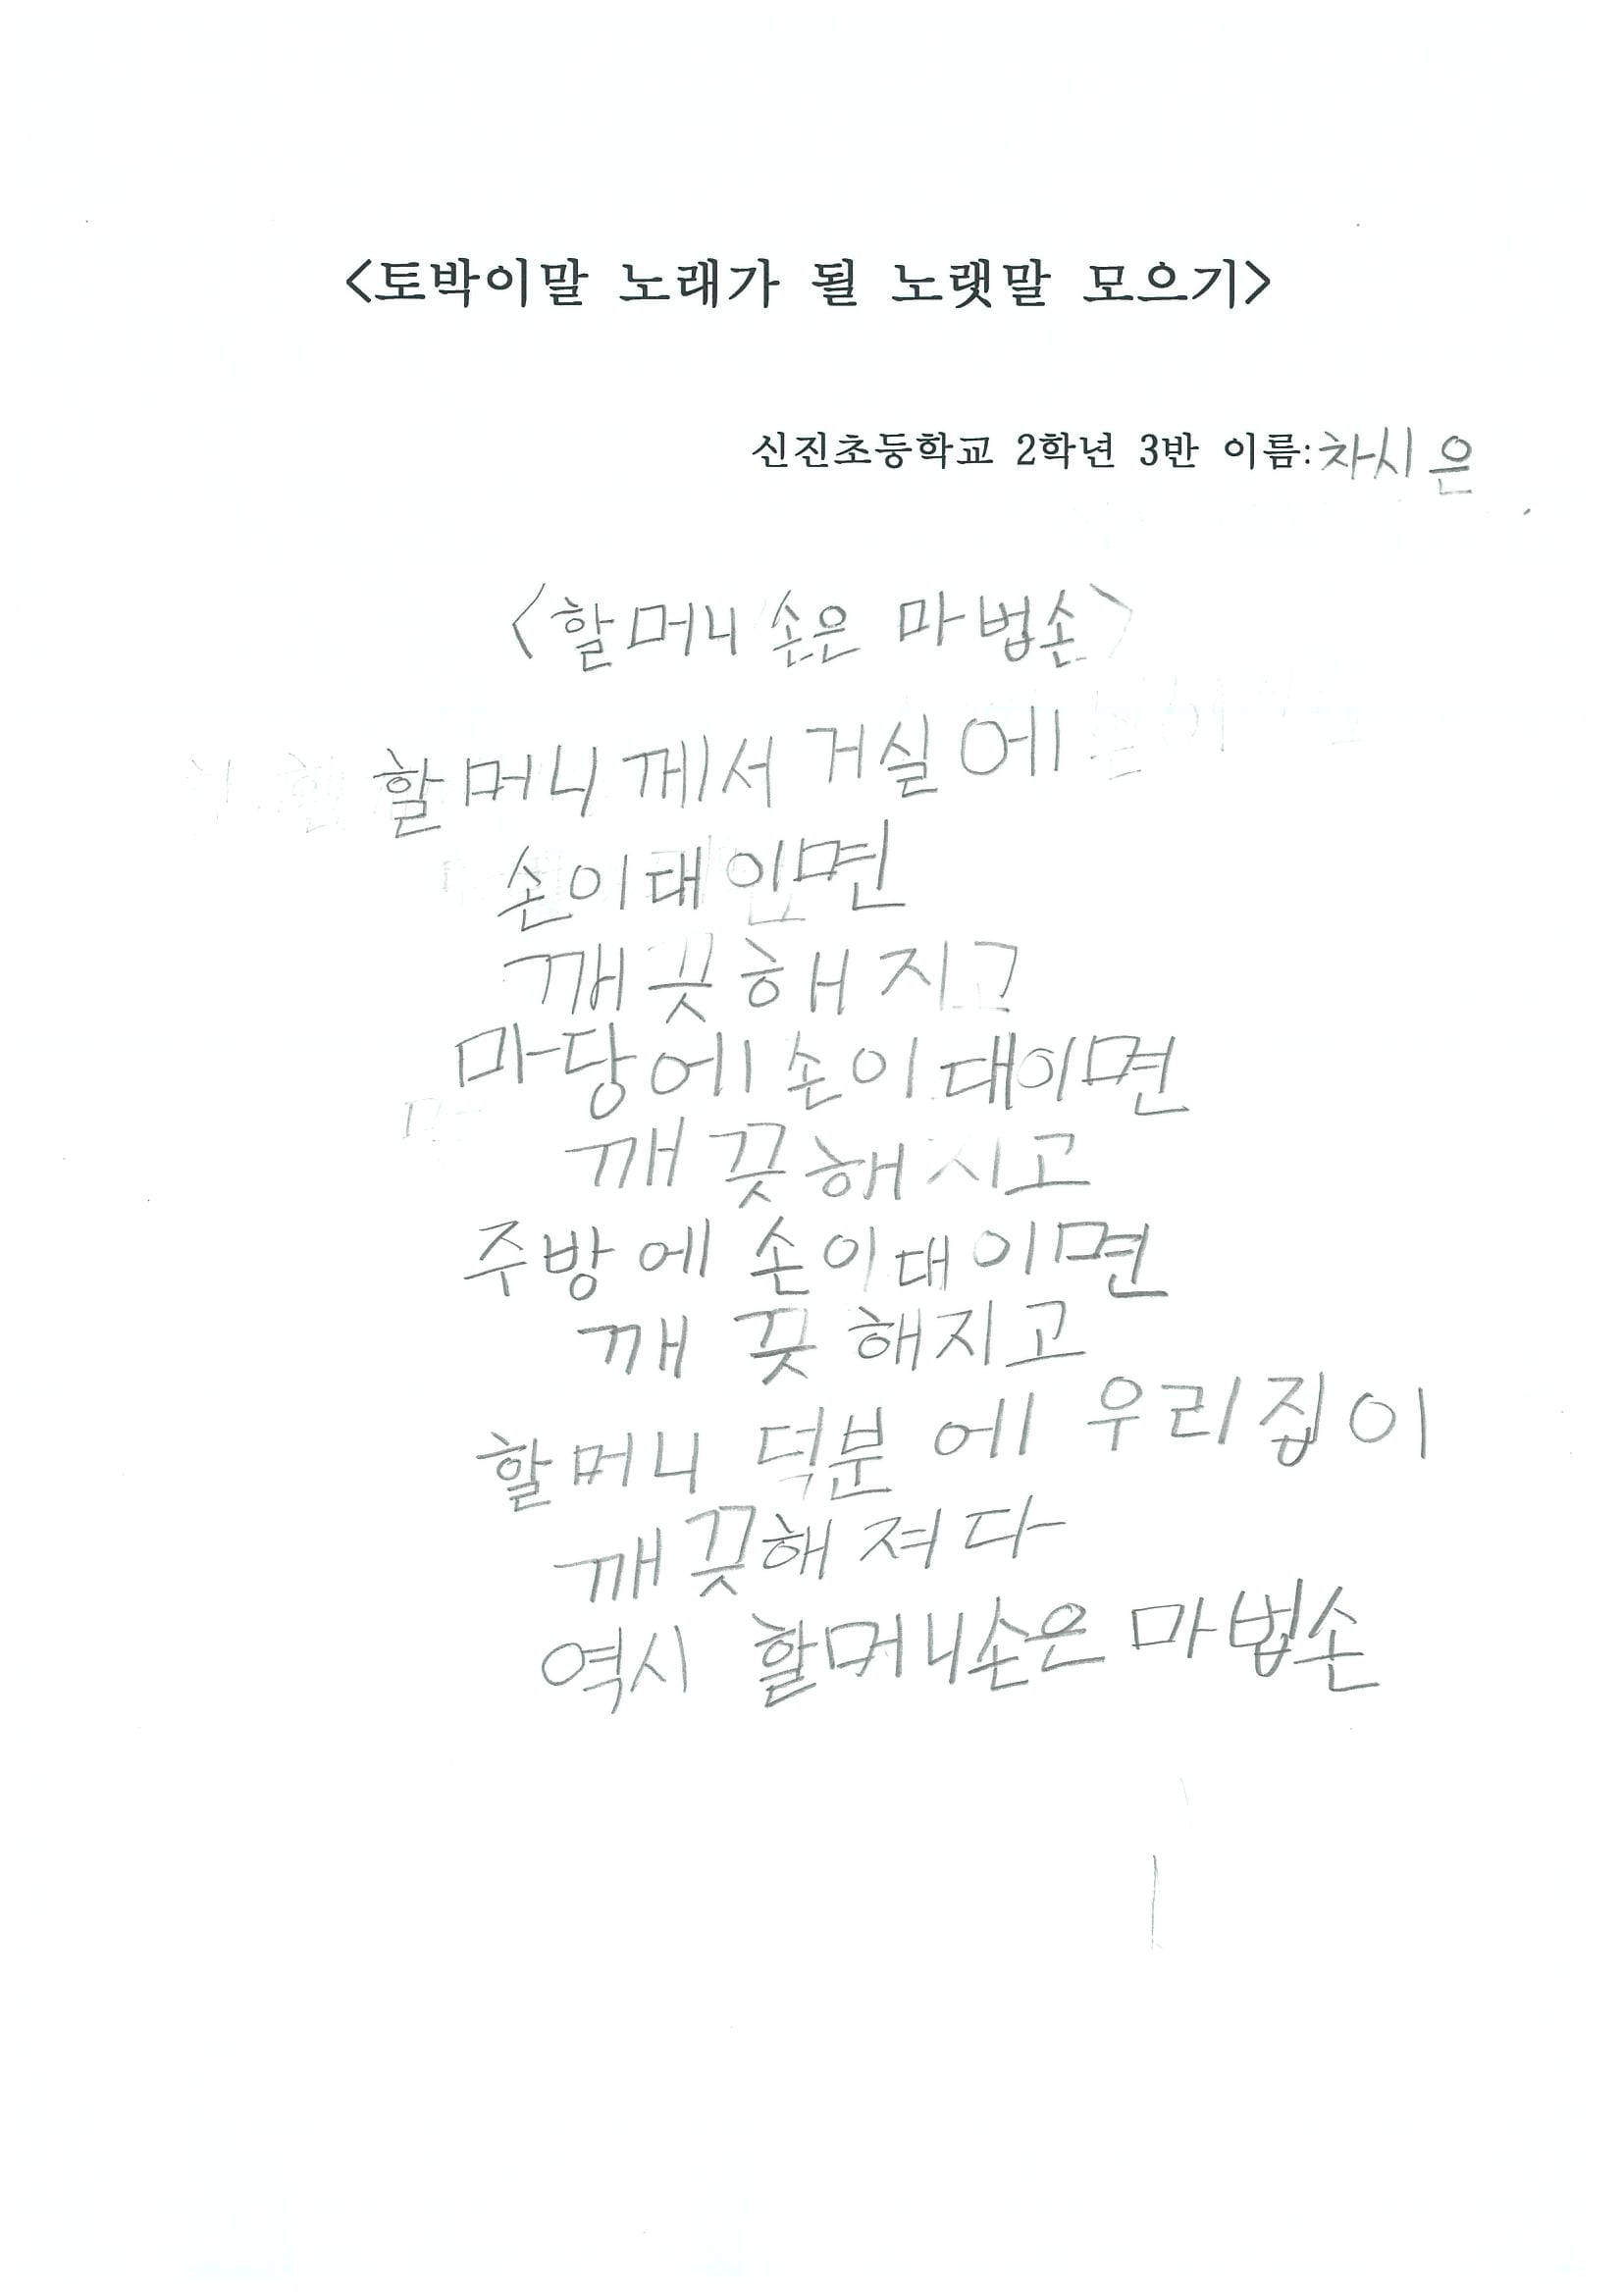 <토박이말 노래가 될 노랫말 모으기>
신진초등학교 2학년 3반 이름:차시은
<할머니 손은 마법손>
할머니께서 거실에
손이대이면
깨끗해지고
마당에손이대이면
깨끗해지고
주방에 손이대이면
깨끗해지고
할머니 덕분에 우리집이
깨끗해져다
역시 할머니손은 마법손